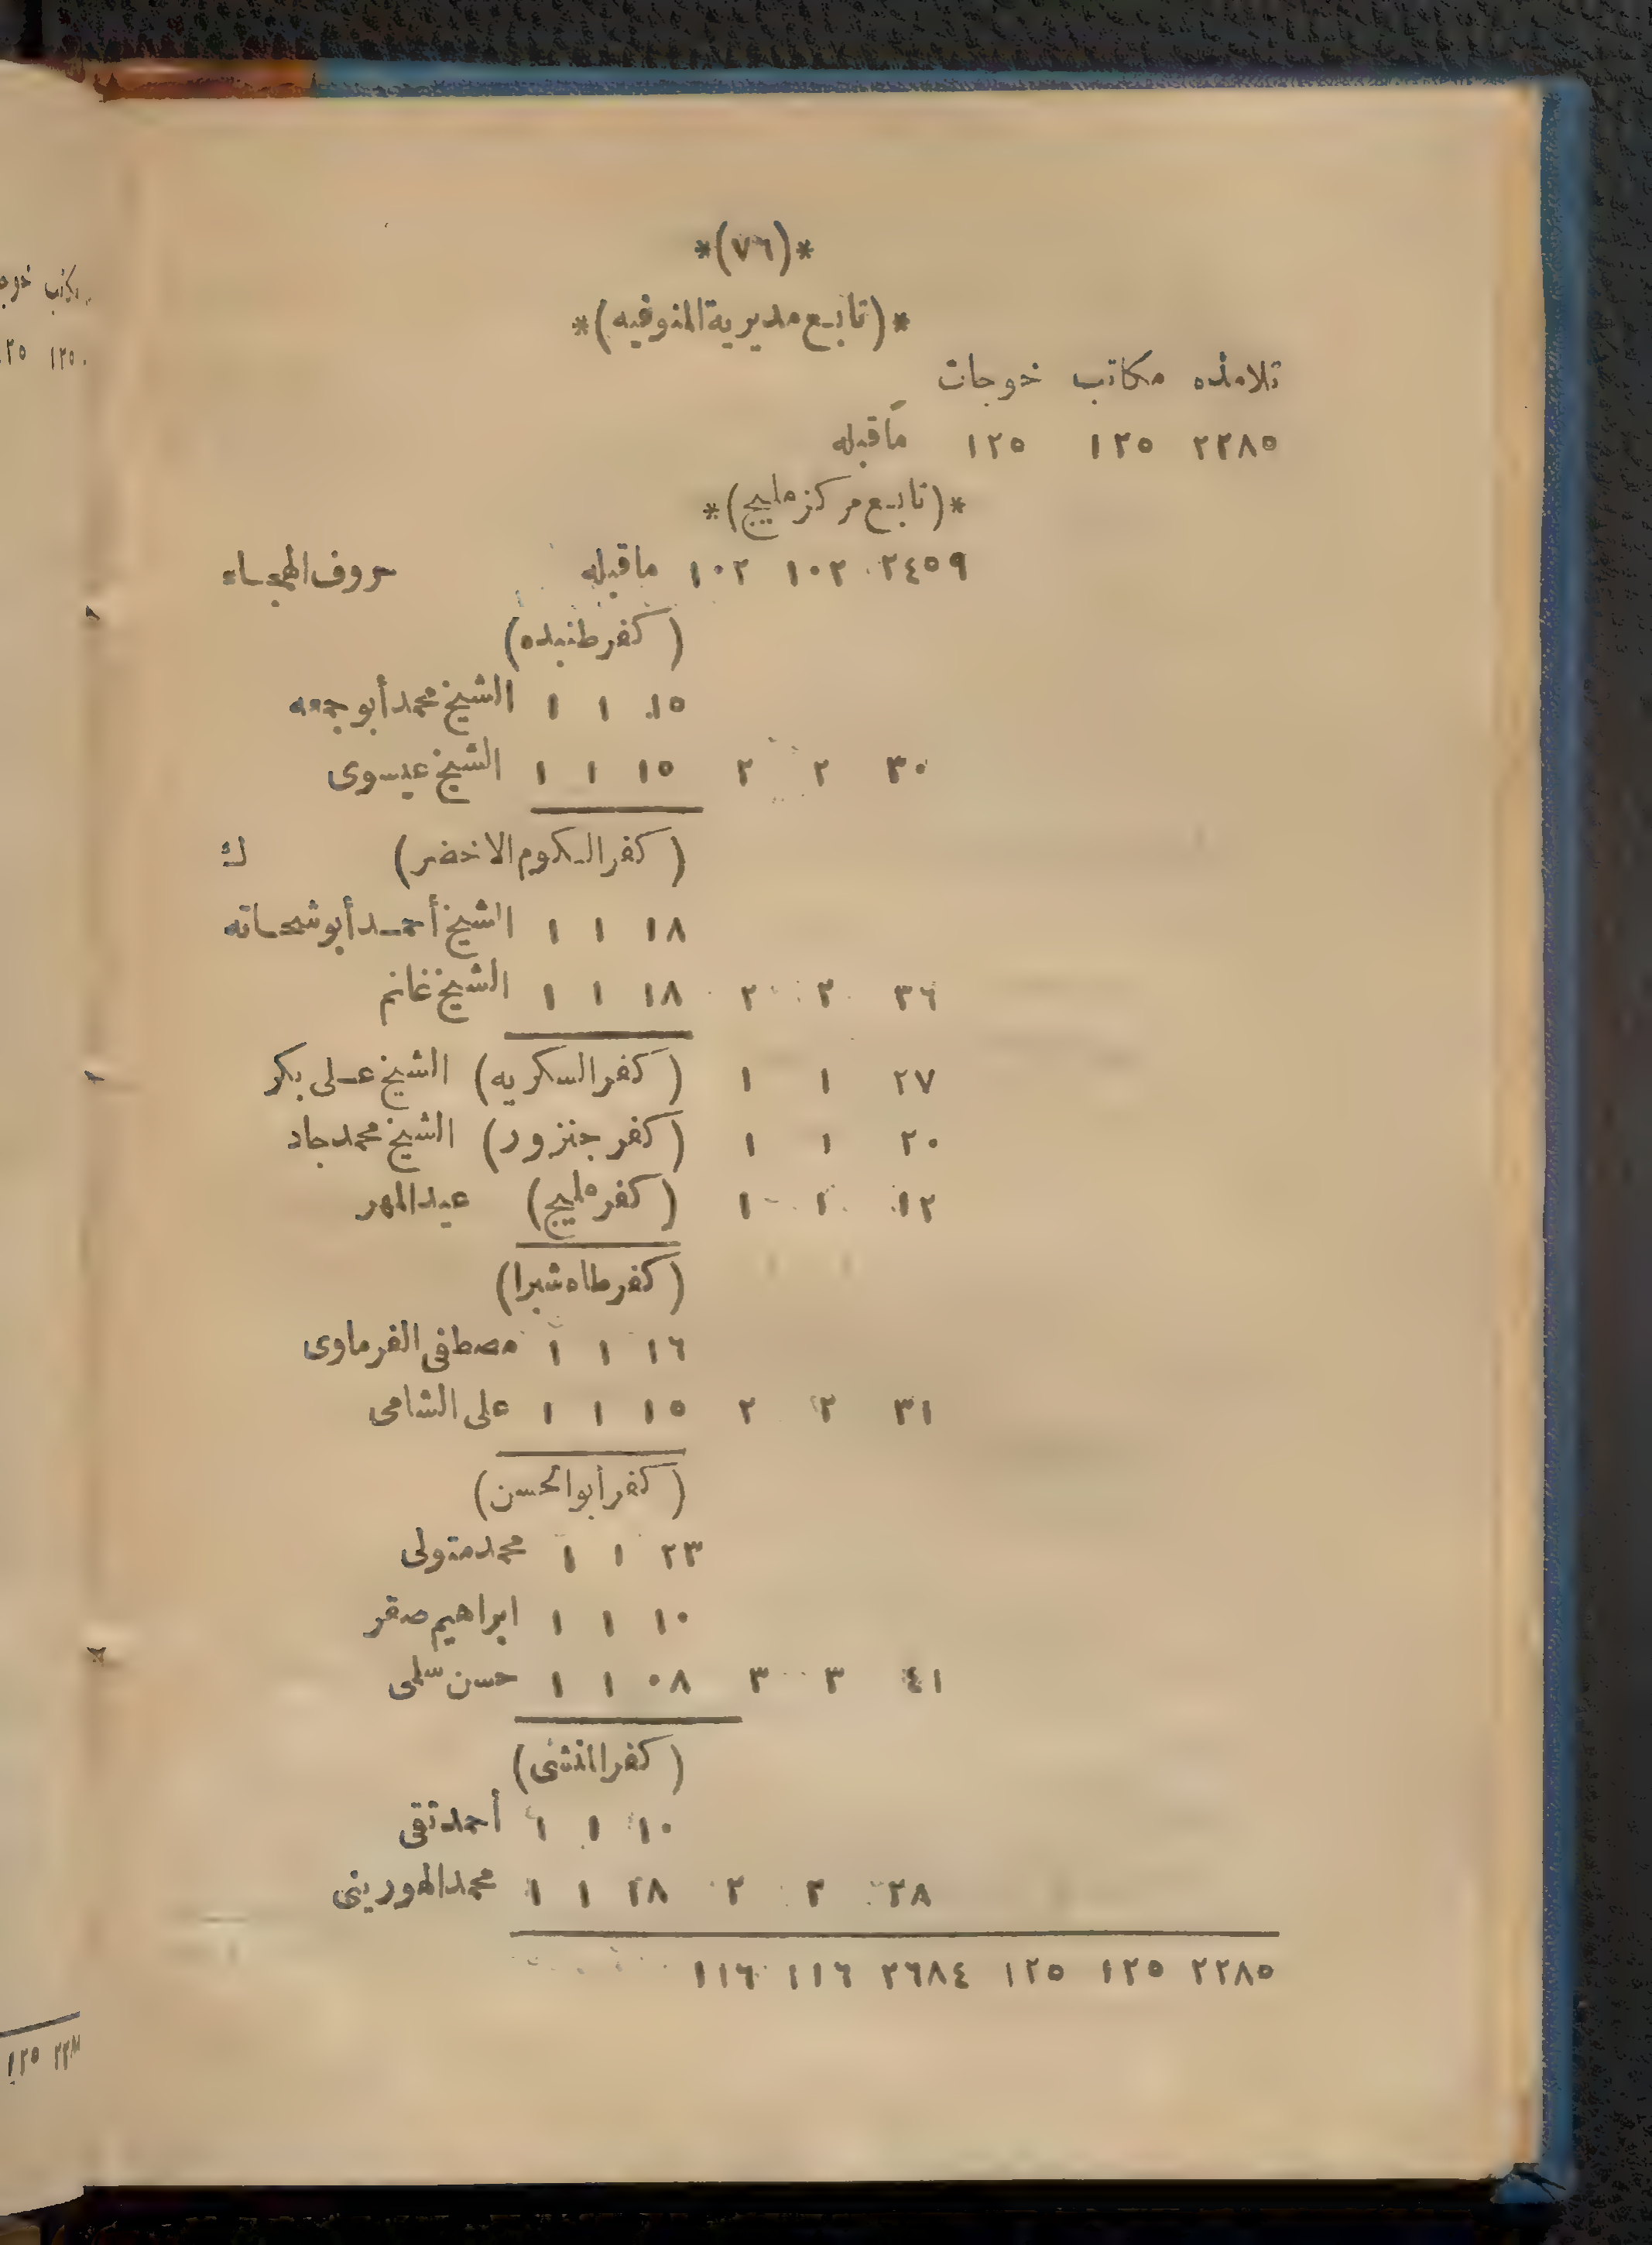 *(٧٦)*
*(تابع مديرية المنوفيه)*
تلامذه مكاتب خوجات
٢٢٨٥ ١٢٥ ١٢٥ ماقبله
*(تابع مركز مليج)*
٢٤٥٩ ١٠٢ ١٠٢ ماقبله حروف الهجاء
(كفر طنبده)
١٥ ١ ١ الشيخ محمد أبو جمعه
٣٠ ٢ ٢ ١٥ ١ ١ الشيخ عيسوى
(كفر الكوم الاخضر) ك
١٨ ١ ١ الشيخ أحمد أبو شحاته
٣٦ ٢ ٢ ١٨ ١ ١ الشيخ غانم
٢٧ ١ ١ (كفر السكريه) الشيخ على بكر
٢٠ ١ ١ (كفر جنزور) الشيخ محمد جاد
١٢ ١ ١ (كفر مليج) عيد المهر
(كفر طاه شبرا)
١٦ ١ ١ مصطفى الفرماوى
٣١ ٢ ٢ ١٥ ١ ١ على الشامى
(كفر أبو الحسن)
٢٣ ١ ١ محمد متولى
١٠ ١ ١ ابراهيم صقر
٤١ ٣ ٣ ٠٨ ١ ١ حسن سلمى
(كفر المنشى)
١٠ ١ ١ أحمد تقى
٢٨ ٢ ٢ ١٨ ١ ١ محمد الهورينى
٢٢٨٥ ١٢٥ ١٢٥ ٢٦٨٤ ١١٦ ١١٦
مكاتب
١٢٥٠
١٢٥